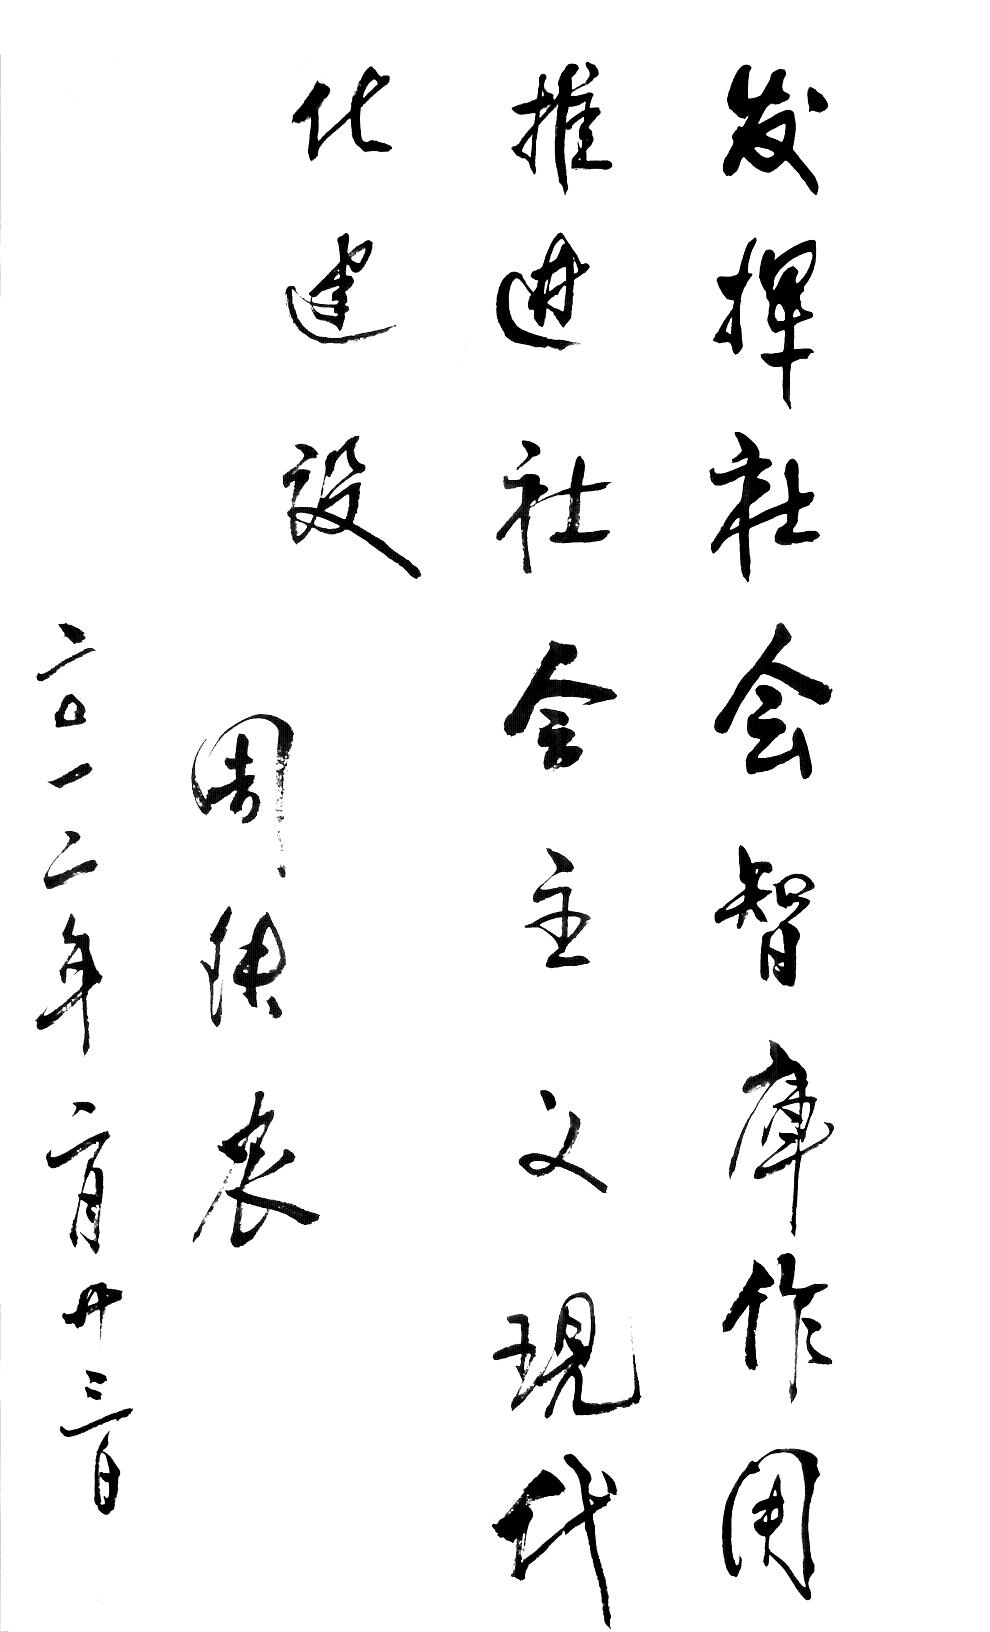 发挥社会智库作用
推进社会主义现代
化建设
周铁农
二〇一二年二月廿三日